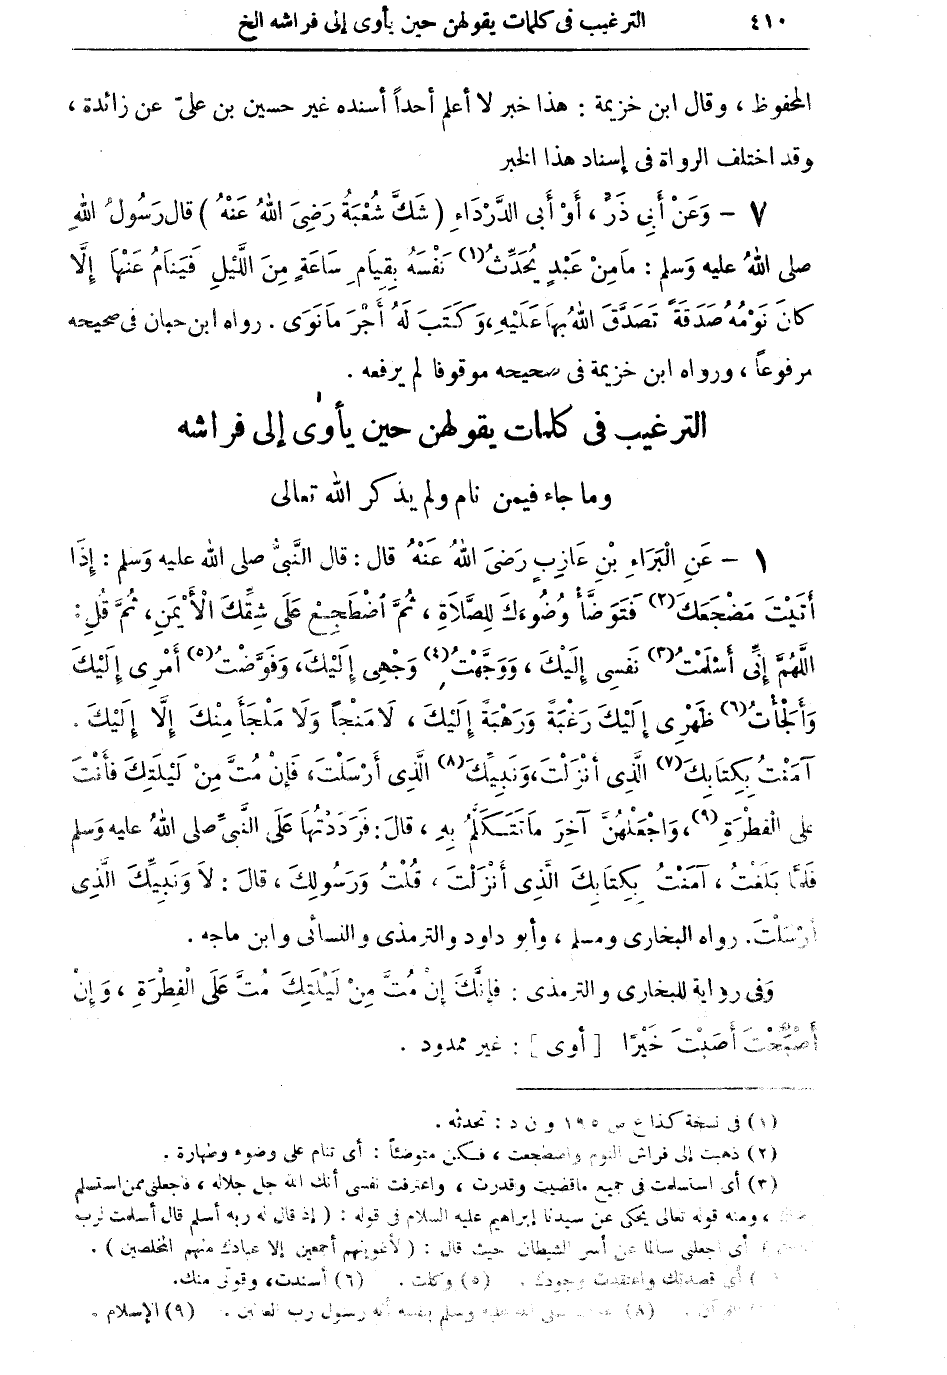 ٤١٠ الترغيب فى كلمات يقولهن حين يأوى إلى فراشه الخ
المحفوظ ، وقال ابن خزيمة : هذا خبر لا أعلم أحداً أسنده غير حسين بن علىّ عن زائدة ،
وقد اختلف الرواة فى إسناد هذا الخبر
٧ – وَعَنْ أَبِى ذَرٍّ ، أَوْ أَبِى الدَّرْدَاءِ ( شَكَّ شُعْبَةُ رَضِىَ اللهُ عَنْهُ ) قال رَسُولُ اللهِ
صلى اللهُ عليه وَسلم : مَامِنْ عَبْدٍ يُحَدِّثُ(١) نَفْسَهُ بِقِيَامِ سَاعَةٍ مِنَ اللَّيْلِ فَيَنَامُ عَنْهَا إِلَّا
كانَ نَوْمُهُ صَدَقَةً تَصَدَّقَ اللهُ بِهَا عَلَيْهِ، وَكَتَبَ لَهُ أَجْرَ مَا نَوَى . رواه ابن حبان فى صحيحه
مرفوعاً ، ورواه ابن خزيمة فى صحيحه موقوفا لم يرفعه .
الترغيب فى كلمات يقولهن حين يأوى إلى فراشه
وما جاء فيمن نام ولم يذكر الله تعالى
١ – عَنِ الْبَرَاءِ بْنِ عَازِبٍ رَضِىَ اللهُ عَنْهُ قال : قال النَّبِىُّ صلى الله عليه وَسلم : إِذَا
أَتَيْتَ مَضْجَعَكَ(٢) فَتَوَضَّأْ وُضُوءَكَ لِلصَّلَاةِ ، ثُمَّ اضْطَجِعْ عَلَى شِقِّكَ الْأَيْمَنِ، ثُمَّ قُلِ :
اللَّهُمَّ إِنِّى أَسْلَمْتُ(٣) نَفْسِى إِلَيْكَ ، وَوَجَّهْتُ(٤) وَجْهِى إِلَيْكَ، وَفَوَّضْتُ(٥) أَمْرِى إِلَيْكَ
وَأَلْجَأْتُ(٦) ظَهْرِى إِلَيْكَ رَغْبَةً وَرَهْبَةً إِلَيْكَ ، لَا مَنْجَأ وَلَا مَلْجَأَ مِنْكَ إِلَّا إِلَيْكَ .
آمَنْتُ بِكِتَابِكَ(٧) الَّذِى أَنْزَلْتَ، وَنَبِيِّكَ(٨) الَّذِى أَرْسَلْتَ، فَإِنْ مُتَّ مِنْ لَيْلَتِكَ فَأَنْتَ
عَلَى الْفِطْرَةِ(٩)، وَاجْعَلْهُنَّ آخِرَ مَا تَتَكَلَّمُ بِهِ ، قالَ : فَرَدَدْتُهَا عَلَى النَّبِىِّ صلى اللهُ عليه وَسلم
فَلَمَّا بَلَغْتُ ، آمَنْتُ بِكِتَابِكَ الَّذِى أَنْزَلْتَ ، قُلْتُ وَرَسُولِكَ ، قالَ : لَا وَنَبِيِّكَ الَّذِى
أَرْسَلْتَ. رواه البخارى ومسلم ، وأبو داود والترمذى والنسائى وابن ماجه .
وَفِى رواية للبخارى والترمذى : فَإِنَّكَ إِنْ مُتَّ مِنْ لَيْلَتِكَ مُتَّ عَلَى الْفِطْرَةِ ، وَإِنْ
أَصْبَحْتَ أَصَبْتَ خَيْرًا [ أوى ] : غير ممدود .
(١) فى نسخة كذا ع س ١٩٥ و ن د : تحدثه .
(٢) ذهبت إلى فراش النوم واضطجعت ، فكن متوضئاً : أى تنام على وضوء وطهارة .
(٣) أى استسلمت فى جميع ماقضيت وقدرت ، واعترفت نفسى أنك الله جل جلاله ، فاجعلنى ممن استسلم
، ومنه قوله تعالى يحكى عن سيدنا إبراهيم عليه السلام فى قوله : ( إذ قال له ربه أسلم قال أسلمت لرب
) أى اجعلنى سالما عن أسر الشيطان حيث قال : ( لأغوينهم أجمعين إلا عبادك منهم المخلصين ) .
) أى قصدتك واعتقدت وجودك . (٥) وكلت . (٦) أسندت، وقوتى منك.
القرآن . (٨) صلى الله عليه وسلم بنفسه أنه رسول رب العالمين . (٩) الإسلام .